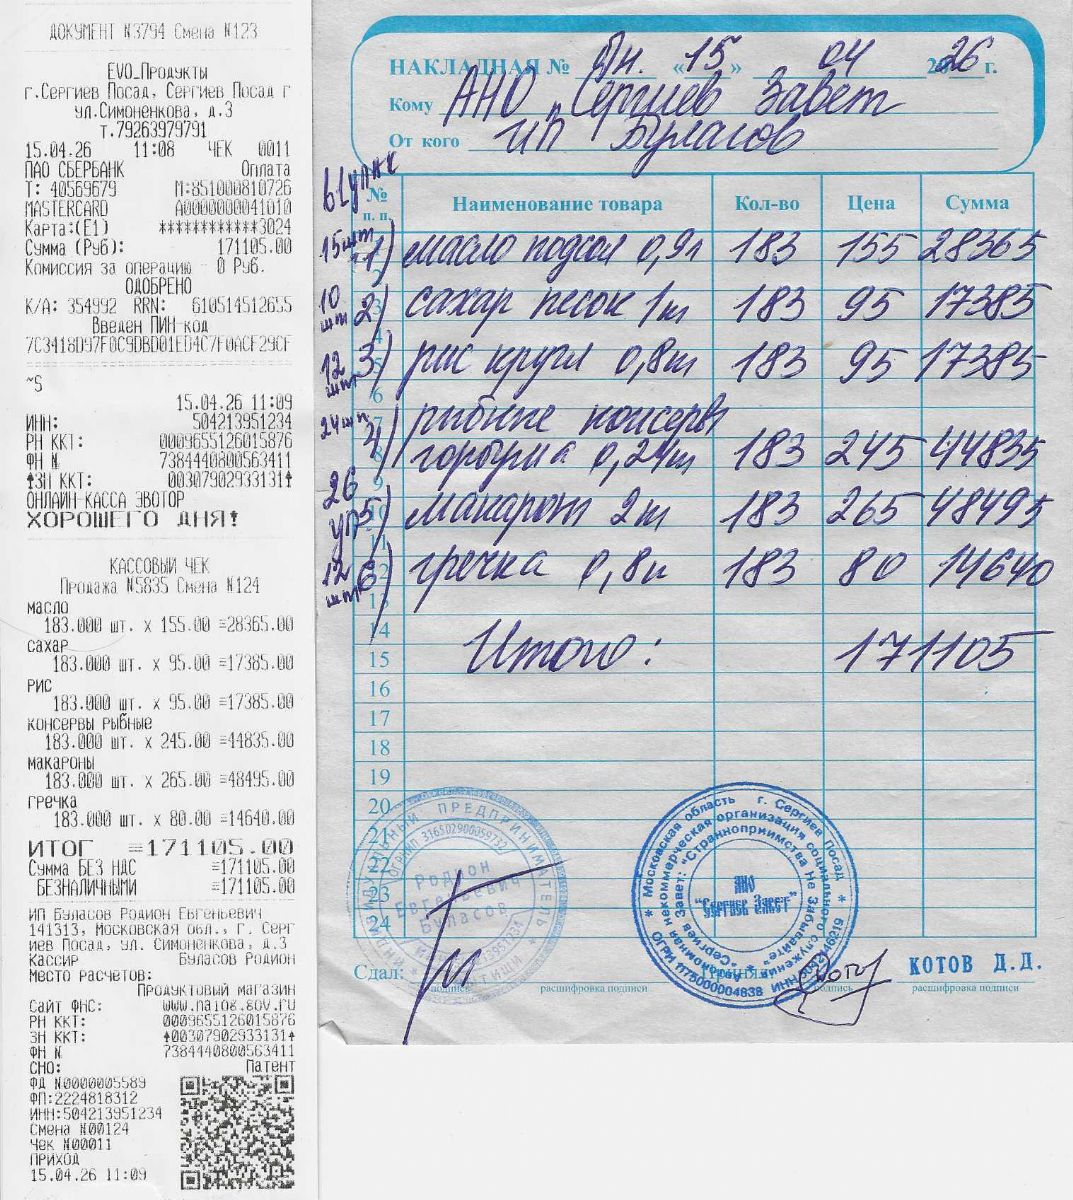 ДОКУМЕНТ N3794 Смена N123
EVO_Продукты
г.Сергиев Посад, Сергиев Посад г
ул.Симоненкова, д.3
т.79263979791
15.04.26 11:08 ЧЕК 0011
ПАО СБЕРБАНК Оплата
Т: 40569679 М:851000810726
MASTERCARD A0000000041010
Карта:(E1) ************3024
Сумма (Руб): 171105.00
Комиссия за операцию - 0 Руб.
ОДОБРЕНО
К/А: 354992 RRN: 610514512655
Введен ПИН-код
7C3418D97F0C9DBD01ED4C7F0ACF29CF
~S
15.04.26 11:09
ИНН: 504213951234
РН ККТ: 0009655126015876
ФН N 7384440800563411
↑ЗН ККТ: 00307902933131↑
ОНЛАЙН-КАССА ЭВОТОР
ХОРОШЕГО ДНЯ!
КАССОВЫЙ ЧЕК
Продажа N5835 Смена N124
масло
183.000 шт. x 155.00 =28365.00
сахар
183.000 шт. x 95.00 =17385.00
рис
183.000 шт. x 95.00 =17385.00
консервы рыбные
183.000 шт. x 245.00 =44835.00
макароны
183.000 шт. x 265.00 =48495.00
гречка
183.000 шт. x 80.00 =14640.00
ИТОГ =171105.00
Сумма БЕЗ НДС =171105.00
БЕЗНАЛИЧНЫМИ =171105.00
ИП Буласов Родион Евгеньевич
141313, Московская обл., г. Серг
иев Посад, ул. Симоненкова, д.3
Кассир Буласов Родион
Место расчетов:
Продуктовый магазин
Сайт ФНС: www.nalog.gov.ru
РН ККТ: 0009655126015876
ЗН ККТ: ↑00307902933131↑
ФН N 7384440800563411
СНО: Патент
ФД N0000005589
ФП:2224818312
ИНН:504213951234
Смена N00124
Чек N00011
ПРИХОД
15.04.26 11:09
НАКЛАДНАЯ № Вн. «15» 04 2026 г.
Кому АНО "Сергиев Завет
От кого ИП Буласов
№ п. п. Наименование товара Кол-во Цена Сумма
15шт 1) масло подсол 0,9л 183 155 28365
10 шт 2) сахар песок 1кг 183 95 17385
12 шт 3) рис кругл 0,8кг 183 95 17385
24шт 4) рыбные консервы
горбуша 0,24кг 183 245 44835
26 уп 5) макарон 2кг 183 265 48495
12 шт 6) гречка 0,8кг 183 80 14640
14
Итого: 171105
15
16
17
18
19
20
21
22
23
24
ИНДИВИДУАЛЬНЫЙ ПРЕДПРИНИМАТЕЛЬ
Родион
Евгеньевич
Буласов
Московская область г. Сергиев Посад
АНО
"Сергиев Завет"
ОГРН 1175000004838
Сдал: Принял:
КОТОВ Д.Д.
подпись расшифровка подписи подпись расшифровка подписи